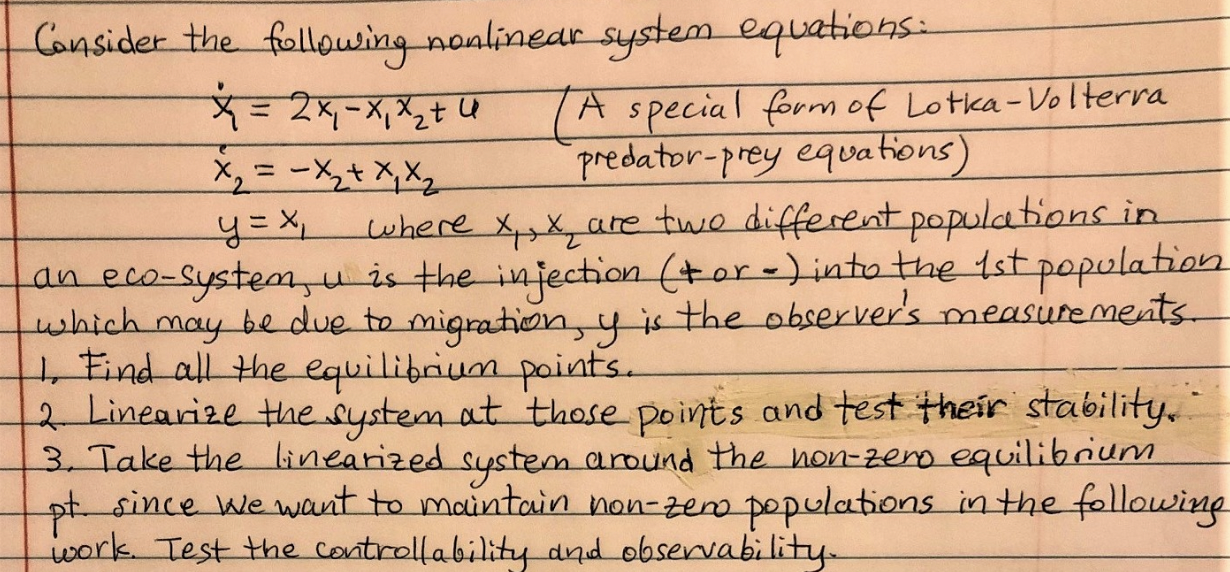 Consider the following nonlinear system equations:
ẋ₁ = 2x₁ - x₁x₂ + u (A special form of Lotka-Volterra
ẋ₂ = -x₂ + x₁x₂ predator-prey equations)
y = x₁ where x₁, x₂ are two different populations in
an eco-system, u is the injection (+ or -) into the 1st population
which may be due to migration, y is the observer's measurements.
1. Find all the equilibrium points.
2. Linearize the system at those points and test their stability.
3. Take the linearized system around the non-zero equilibrium
pt. since we want to maintain non-zero populations in the following
work. Test the controllability and observability.